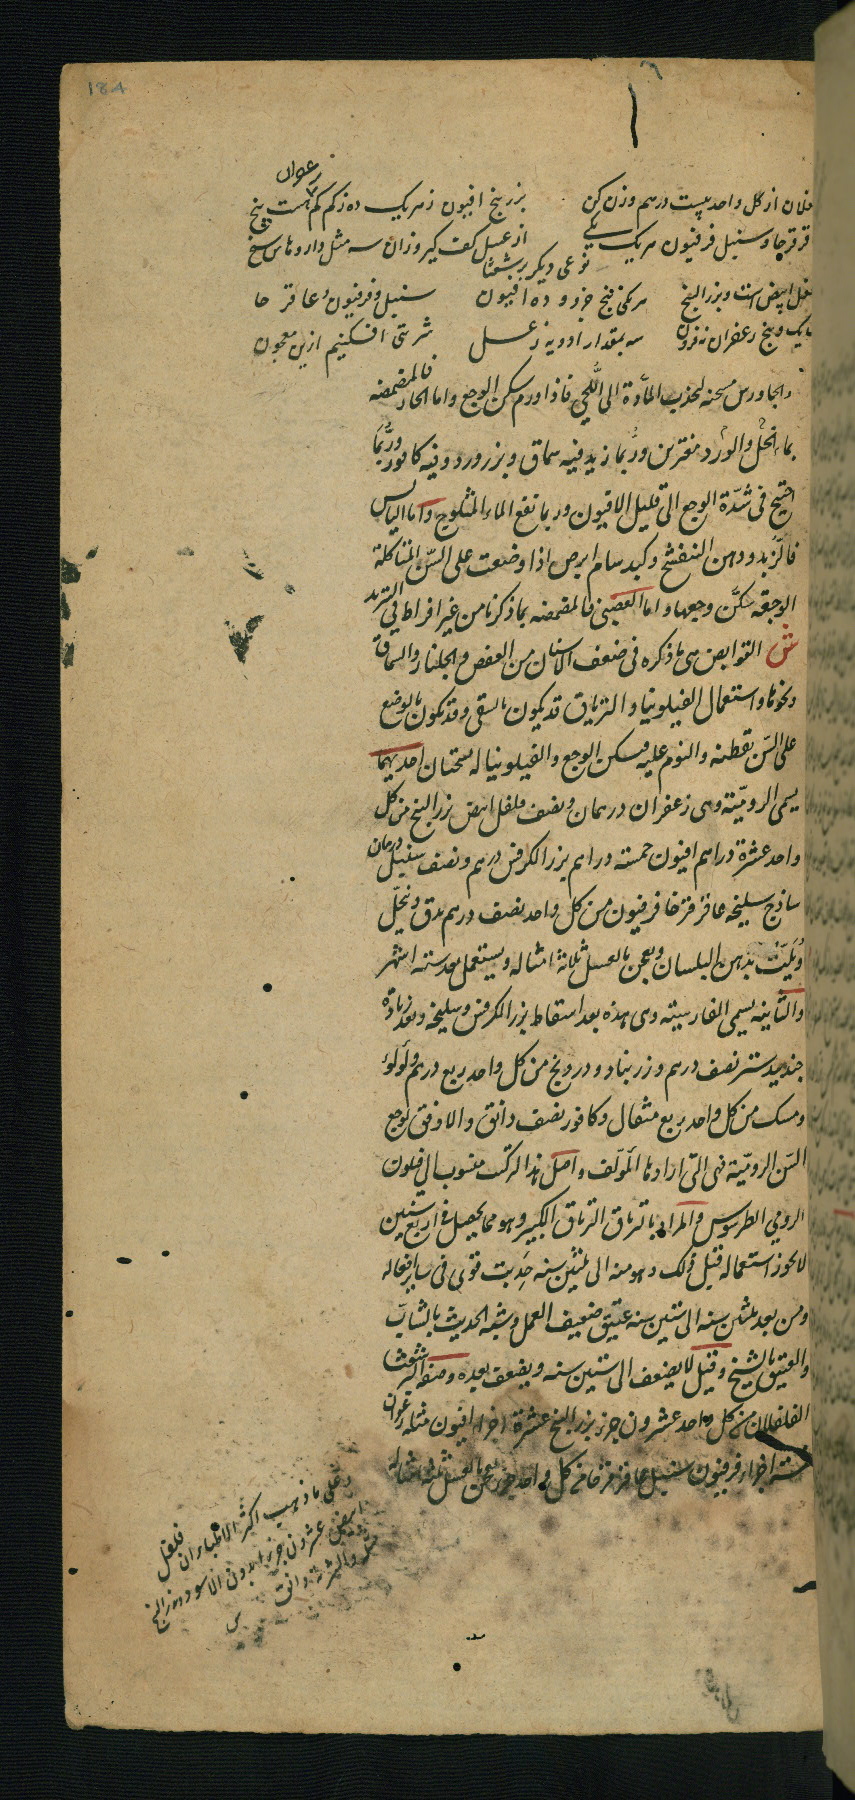 184
فلفلان از کل واحد بیست درهم وزن کن
بزر بنج افیون ز هر یک ده زکم کم هست پنج
زعفران
قرقرحا و سنبل فرفیون هر یک یکی
از عسل کف گیر وزان سه مثل داروها بسنج
نوعی دیگر برشعثا
فلفل ابیض است و بزر البنج
هر یکی پنج جزو و ده افیون
سنبل و فرفیون و عاقر حا
یک و پنج زعفران نه فزون
سه بمقدار ادویه ز عسل
شربتی افکنیم ازین معجون
والجاورس مسخنه لجذب المادة الی اللحی فاذا ورم سکن الوجع واما الحار فالمضمضه
بماء الخل والورد مفترین وربما زید فیه سماق وبزر ورد وفیه کافور وربما
احتیج فی شدّة الوجع الی قلیل الافیون وربما نفع الماء المثلوج واما الیابس
فالزبد ودهن البنفسج وکبد سام ابرص اذا وضعت علی السن المتاکلة
الوجعة سکّن وجعها واما العصبی فالمضمضه بما ذکرنا من غیر افراط فی التبرید
ش القوابض هی ما ذکره فی ضعف الاسنان من العفص والجلنار والسماق
ونحوها واستعمال الفیلونیا والتریاق قد یکون بالسقی وقد یکون بالوضع
علی السن بقطنه والنوم علیه فیسکن الوجع والفیلونیا له نسختان احدیهما
یسمی الرومیّة وهی زعفران درهمان ونصف فلفل ابیض بزر البنج من کل
واحد عشرة دراهم افیون خمسته دراهم بزر الکرفس درهم ونصف سنبل درهمان
ساذج سلیخه عاقرقرحا فرفیون من کل واحد نصف درهم یدق وینخل
ویلتّ بدهن البلسان ویعجن بالعسل ثلاثة امثاله ویستعمل بعد سته اشهر
والثانیه یسمی الفارسیته وهی هذه بعد اسقاط بزر الکرفس وسلیخه وبعد زیادة
جندبیدستر نصف درهم وزرنباد ودرونج من کل واحد ربع درهم ولولو
ومسک من کل واحد ربع مثقال وکافور نصف دانق والاوفق لوجع
السن الرومیّة فهی التی ارادها المؤلف واصل هذا الرکب منسوب الی فیلون
الرومی الطرسوس والمراد بالتریاق التریاق الکبیر وهو مما یحصل فی اربع سنین
لایجوز استعماله قبل ذلک وهو منه الی ثلثین سنه حدیث قوی فی سایر افعاله
ومن بعد ثلثین سنه الی ستین سنه عتیق ضعیف العمل وشبه الحدیث بالشابّ
والعتیق بالشیخ وقیل لایضعف الی ستین سنه ویضعف بعده وصفه البرشعثا
الفلفلان من کل واحد عشرون جزء بزر البنج عشرة اجزاء افیون مثله زعفران
سته اجزاء فرفیون سنبل عاقرقرحا من کل واحد جزء یعجن بالعسل ثلثه امثاله
وعلی ما ذهب اکثر الاطباء ان فلفل
ابیض عشرون جزءا بدون الاسود وبزر البنج
مثله والشربة دانق